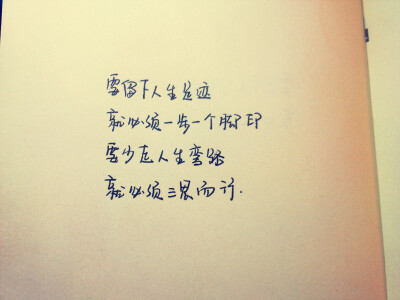 要留下人生足迹
就必须一步一个脚印
要少走人生弯路
就必须三思而行.